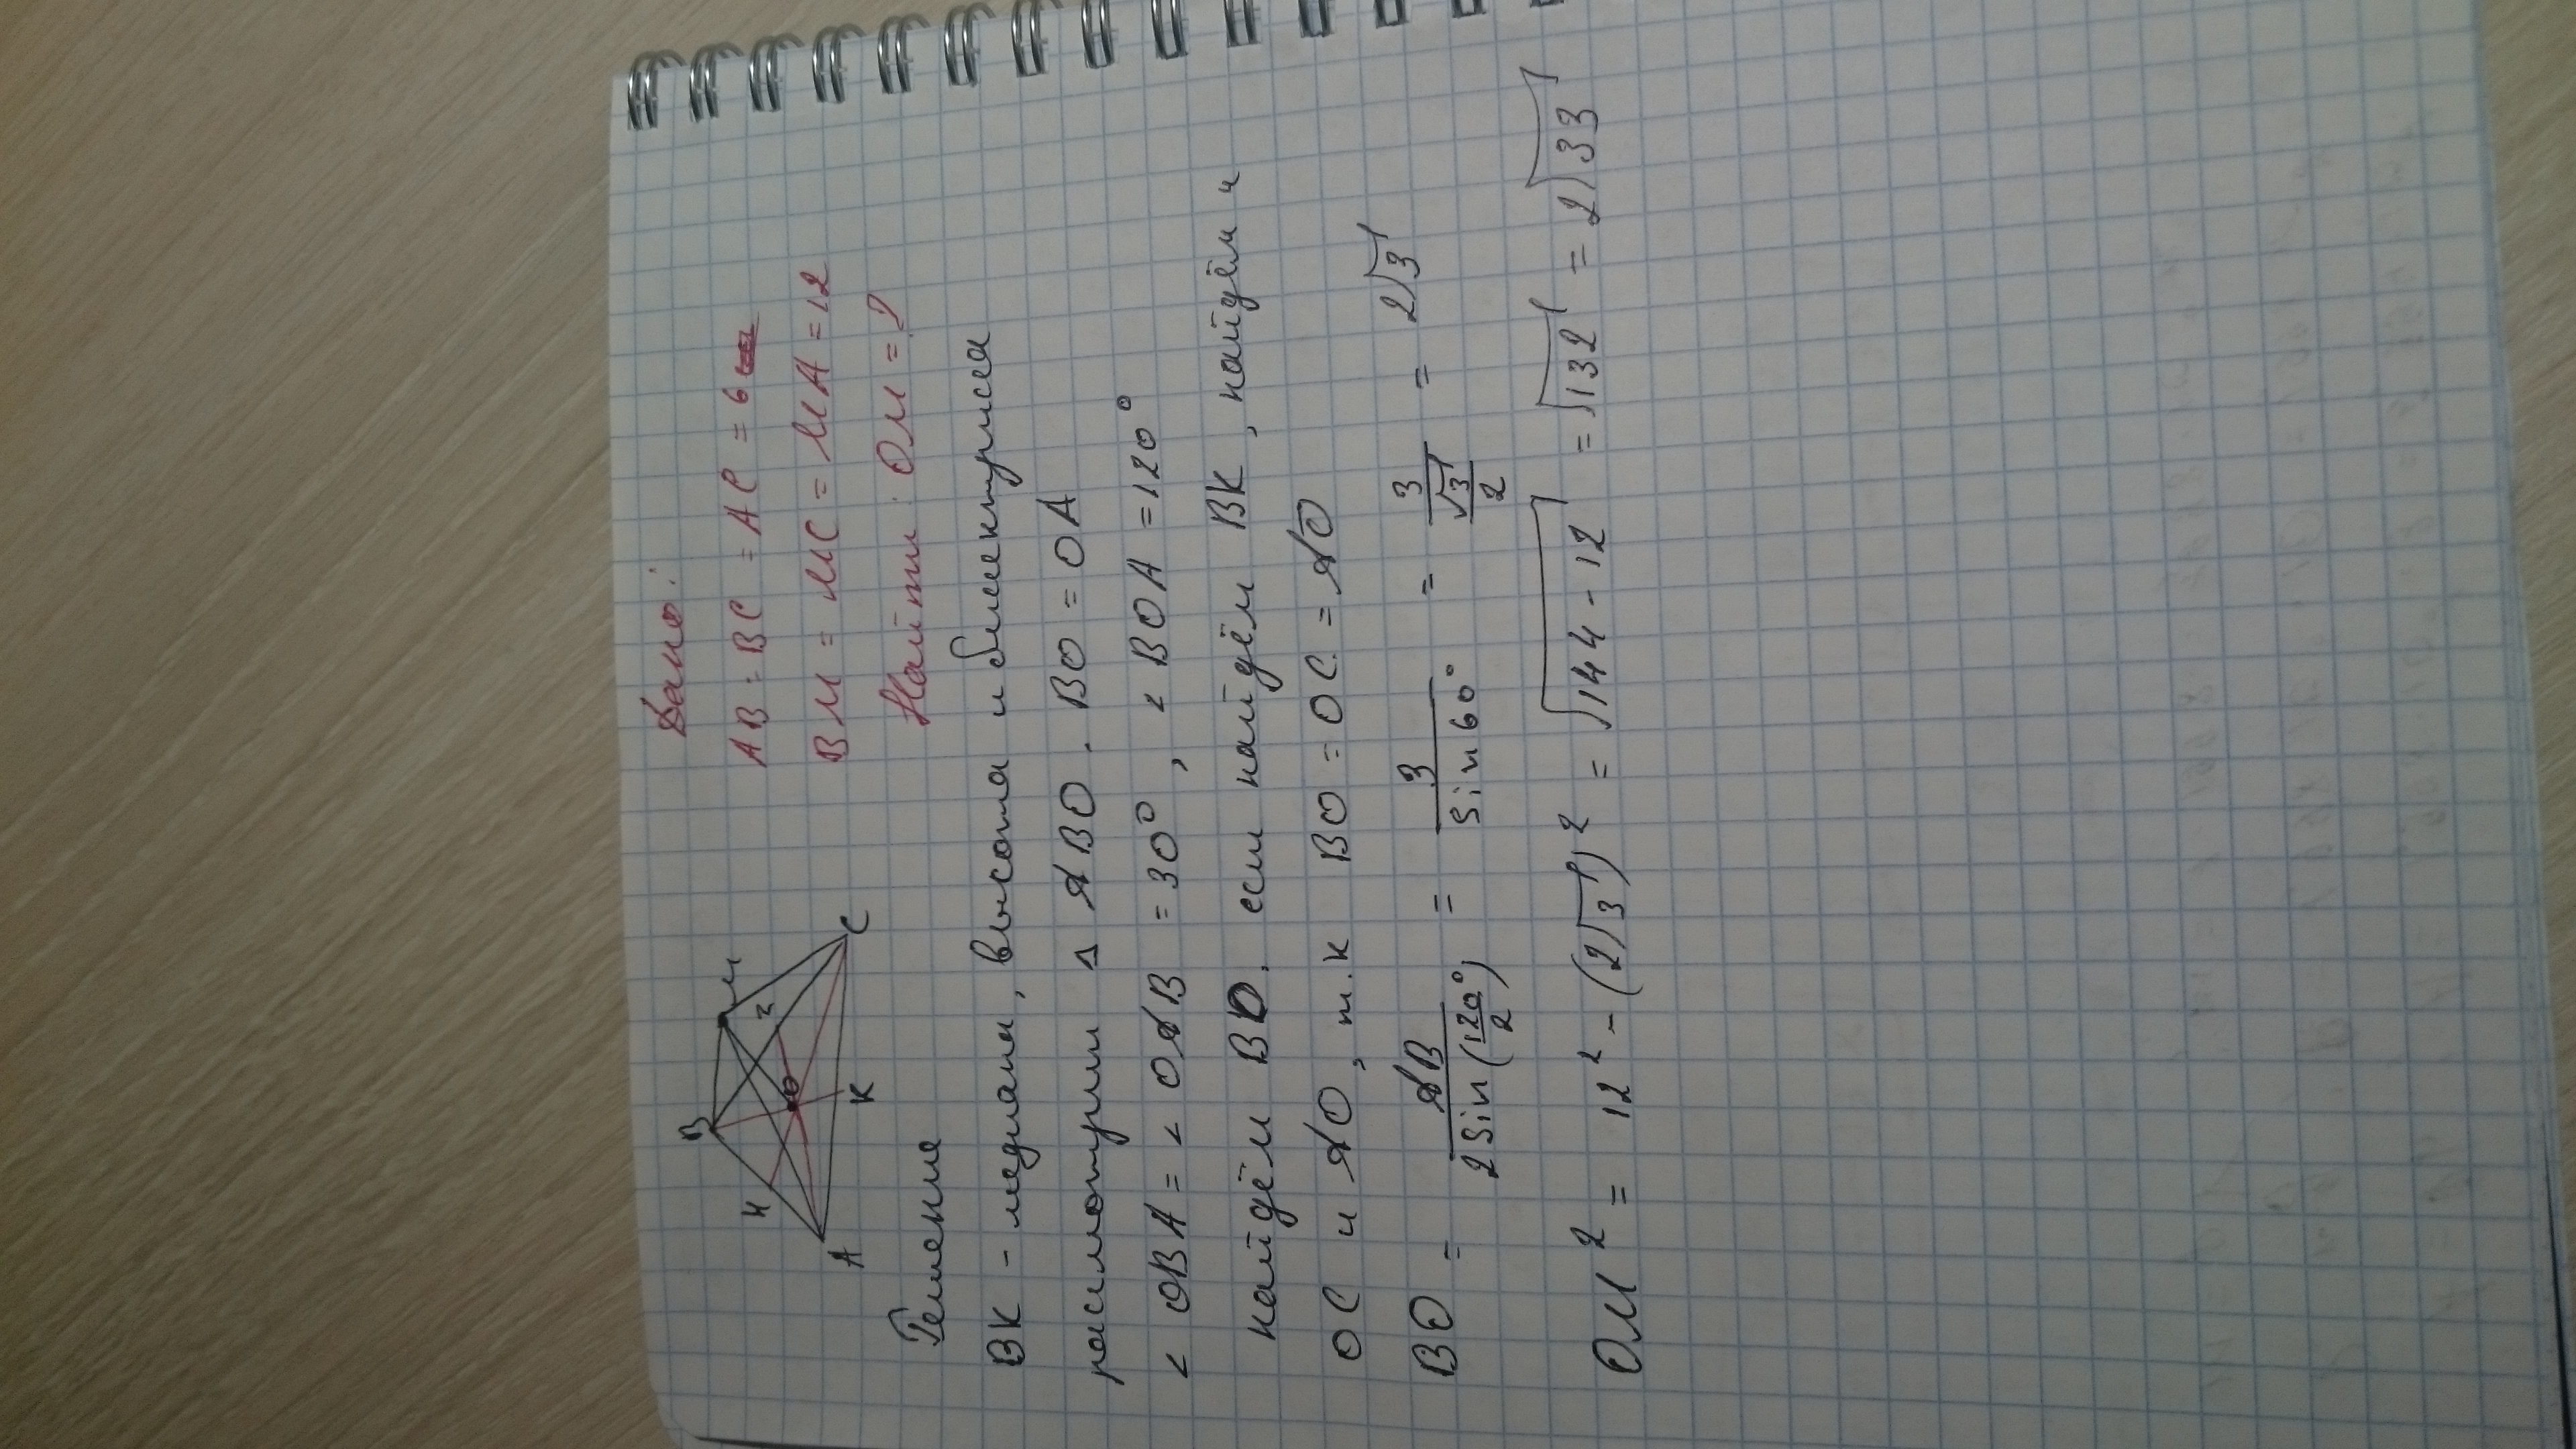 Дано:
AB = BC = AC = 6
BM = MC = MA = 12
Найти: OM = ?
B
M
H
O
A
K
C
Решение
BK - медиана, высота и биссектриса
рассмотрим Δ ABO. BO = OA
< OBA = < OAB = 30°, < BOA = 120°
найдём BO. если найдём BK, найдём и
OC и AO, т.к BO = OC = AO
BO = AB / 2 Sin(120°/2) = 3 / Sin 60° = 3 / √3/2 = 2√3
OM² = 12² - (2√3)² = √144 - 12 = √132 = 2√33